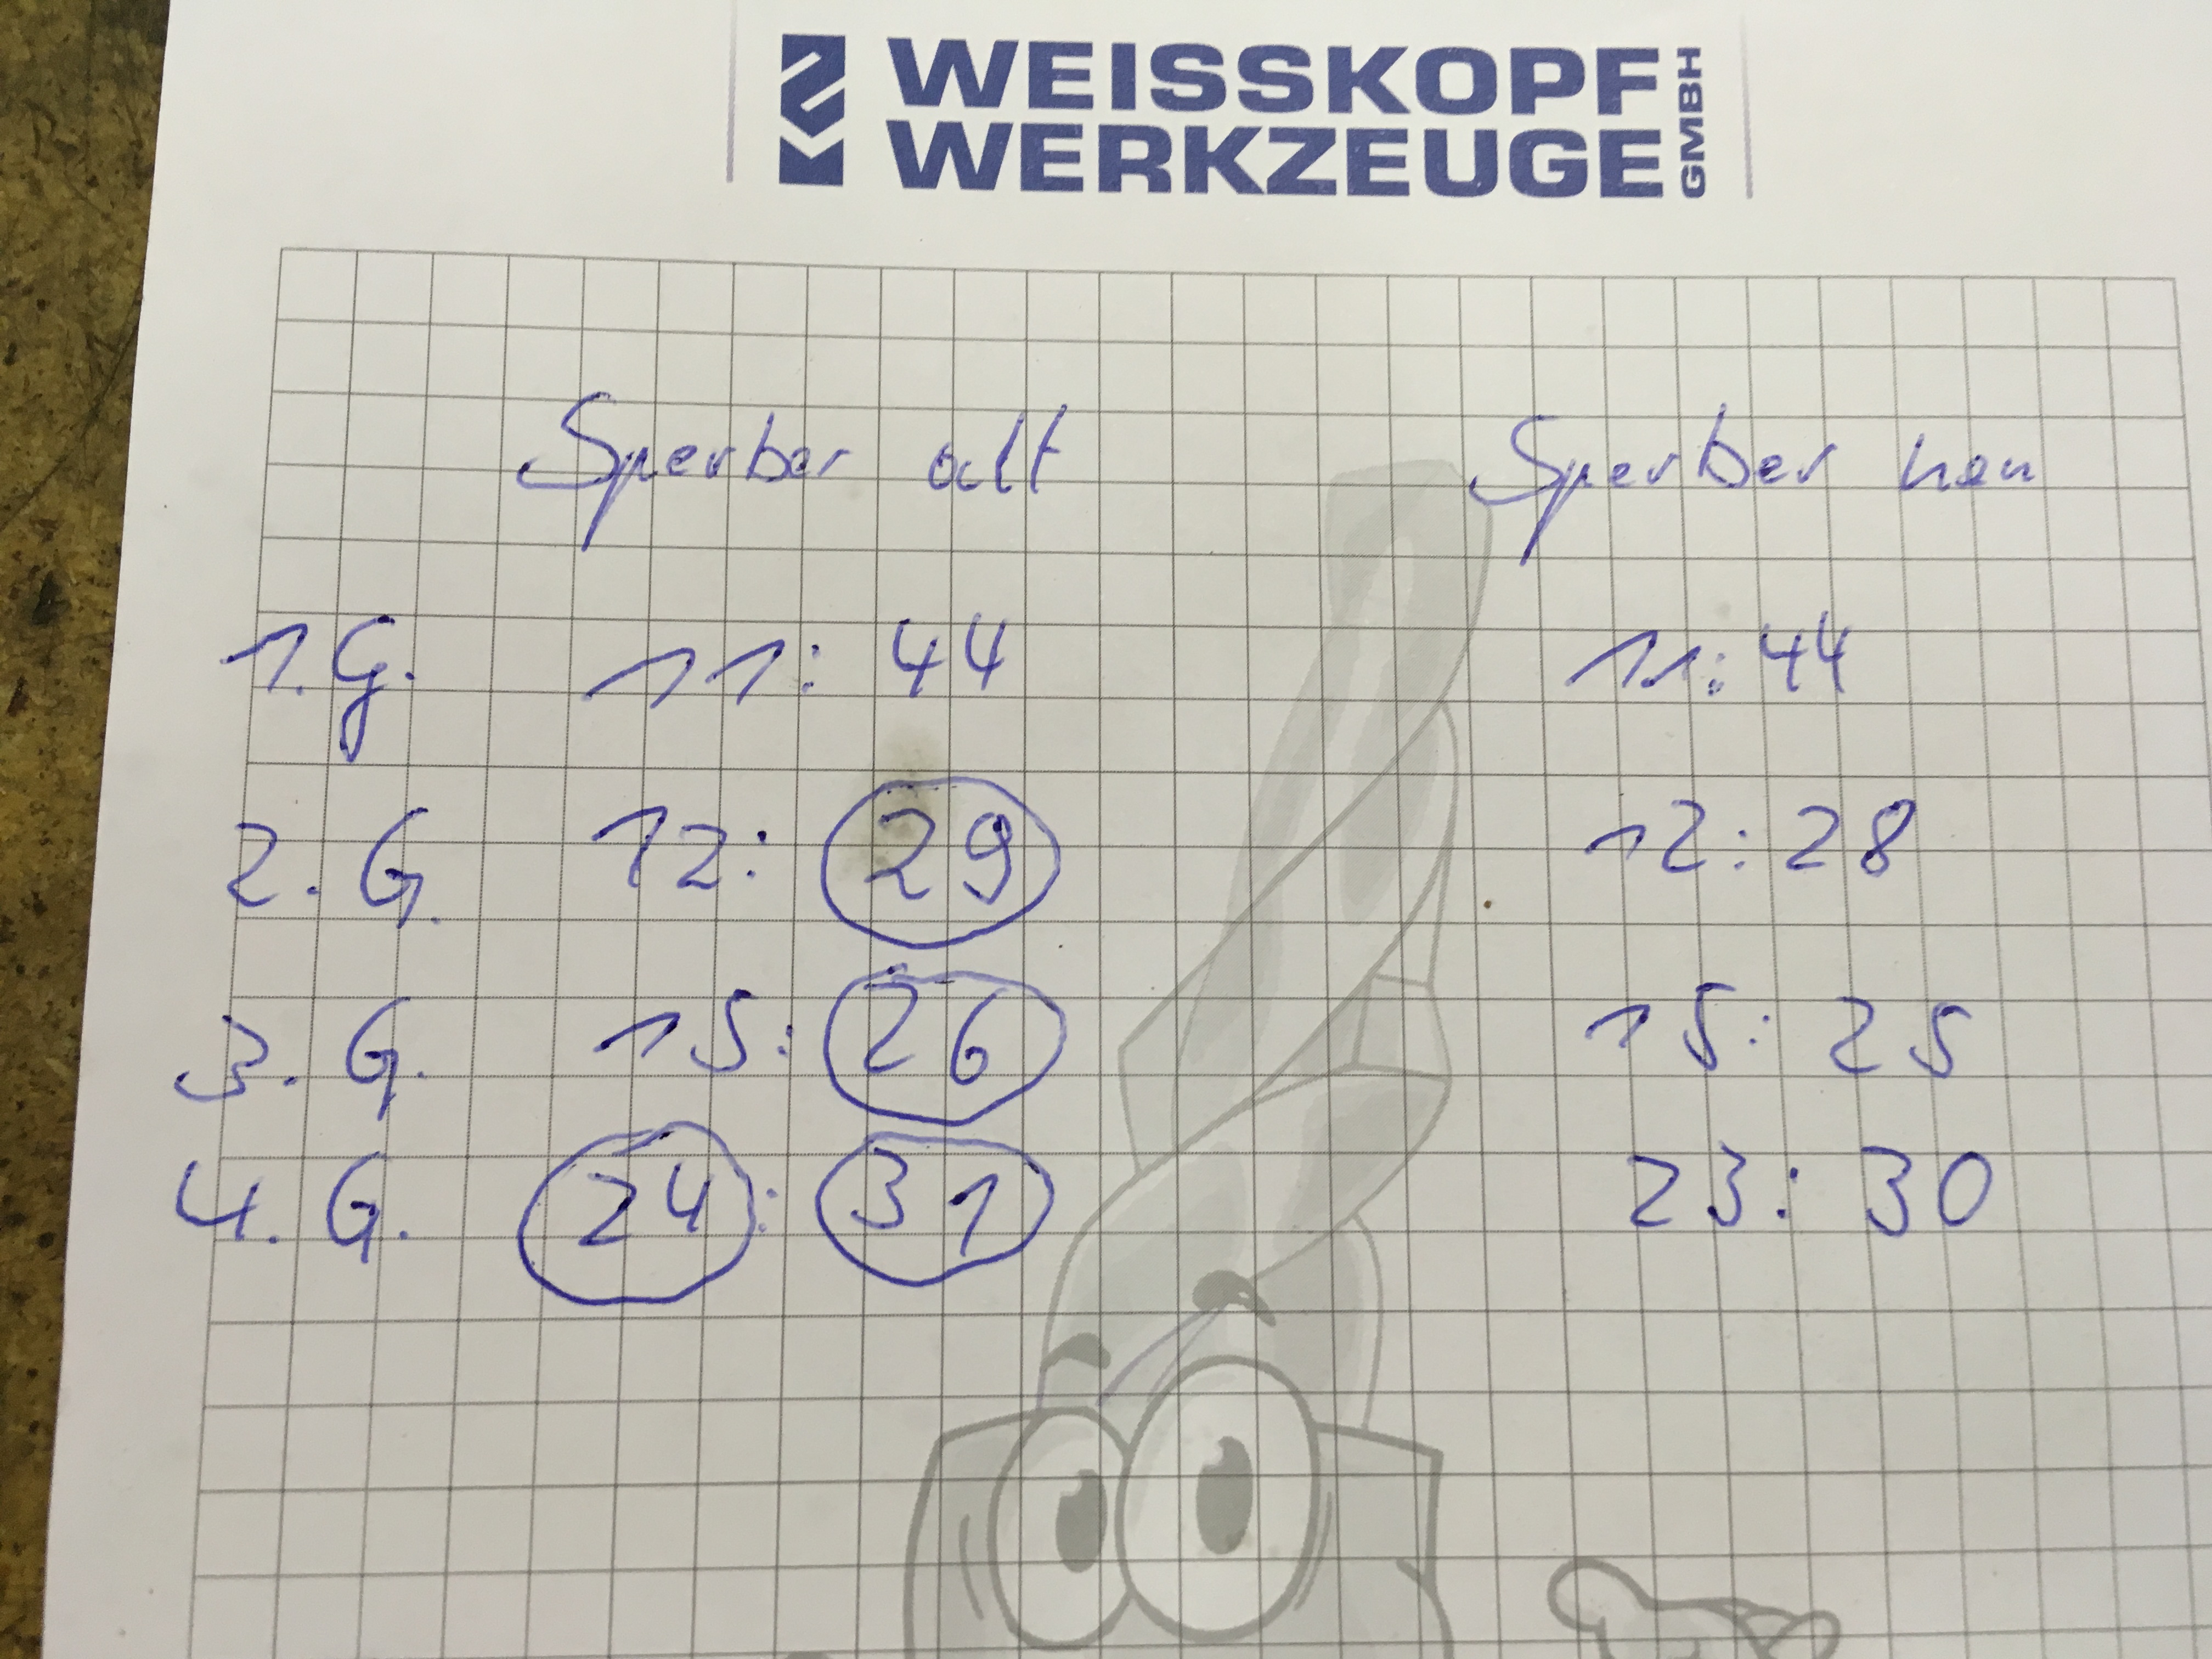 WEISSKOPF
WERKZEUGE
GMBH
Sperber alt Sperber neu
1. G. 11: 44 11: 44
2. G. 12: 29 12: 28
3. G. 15: 26 15: 25
4. G. 24: 31 23: 30